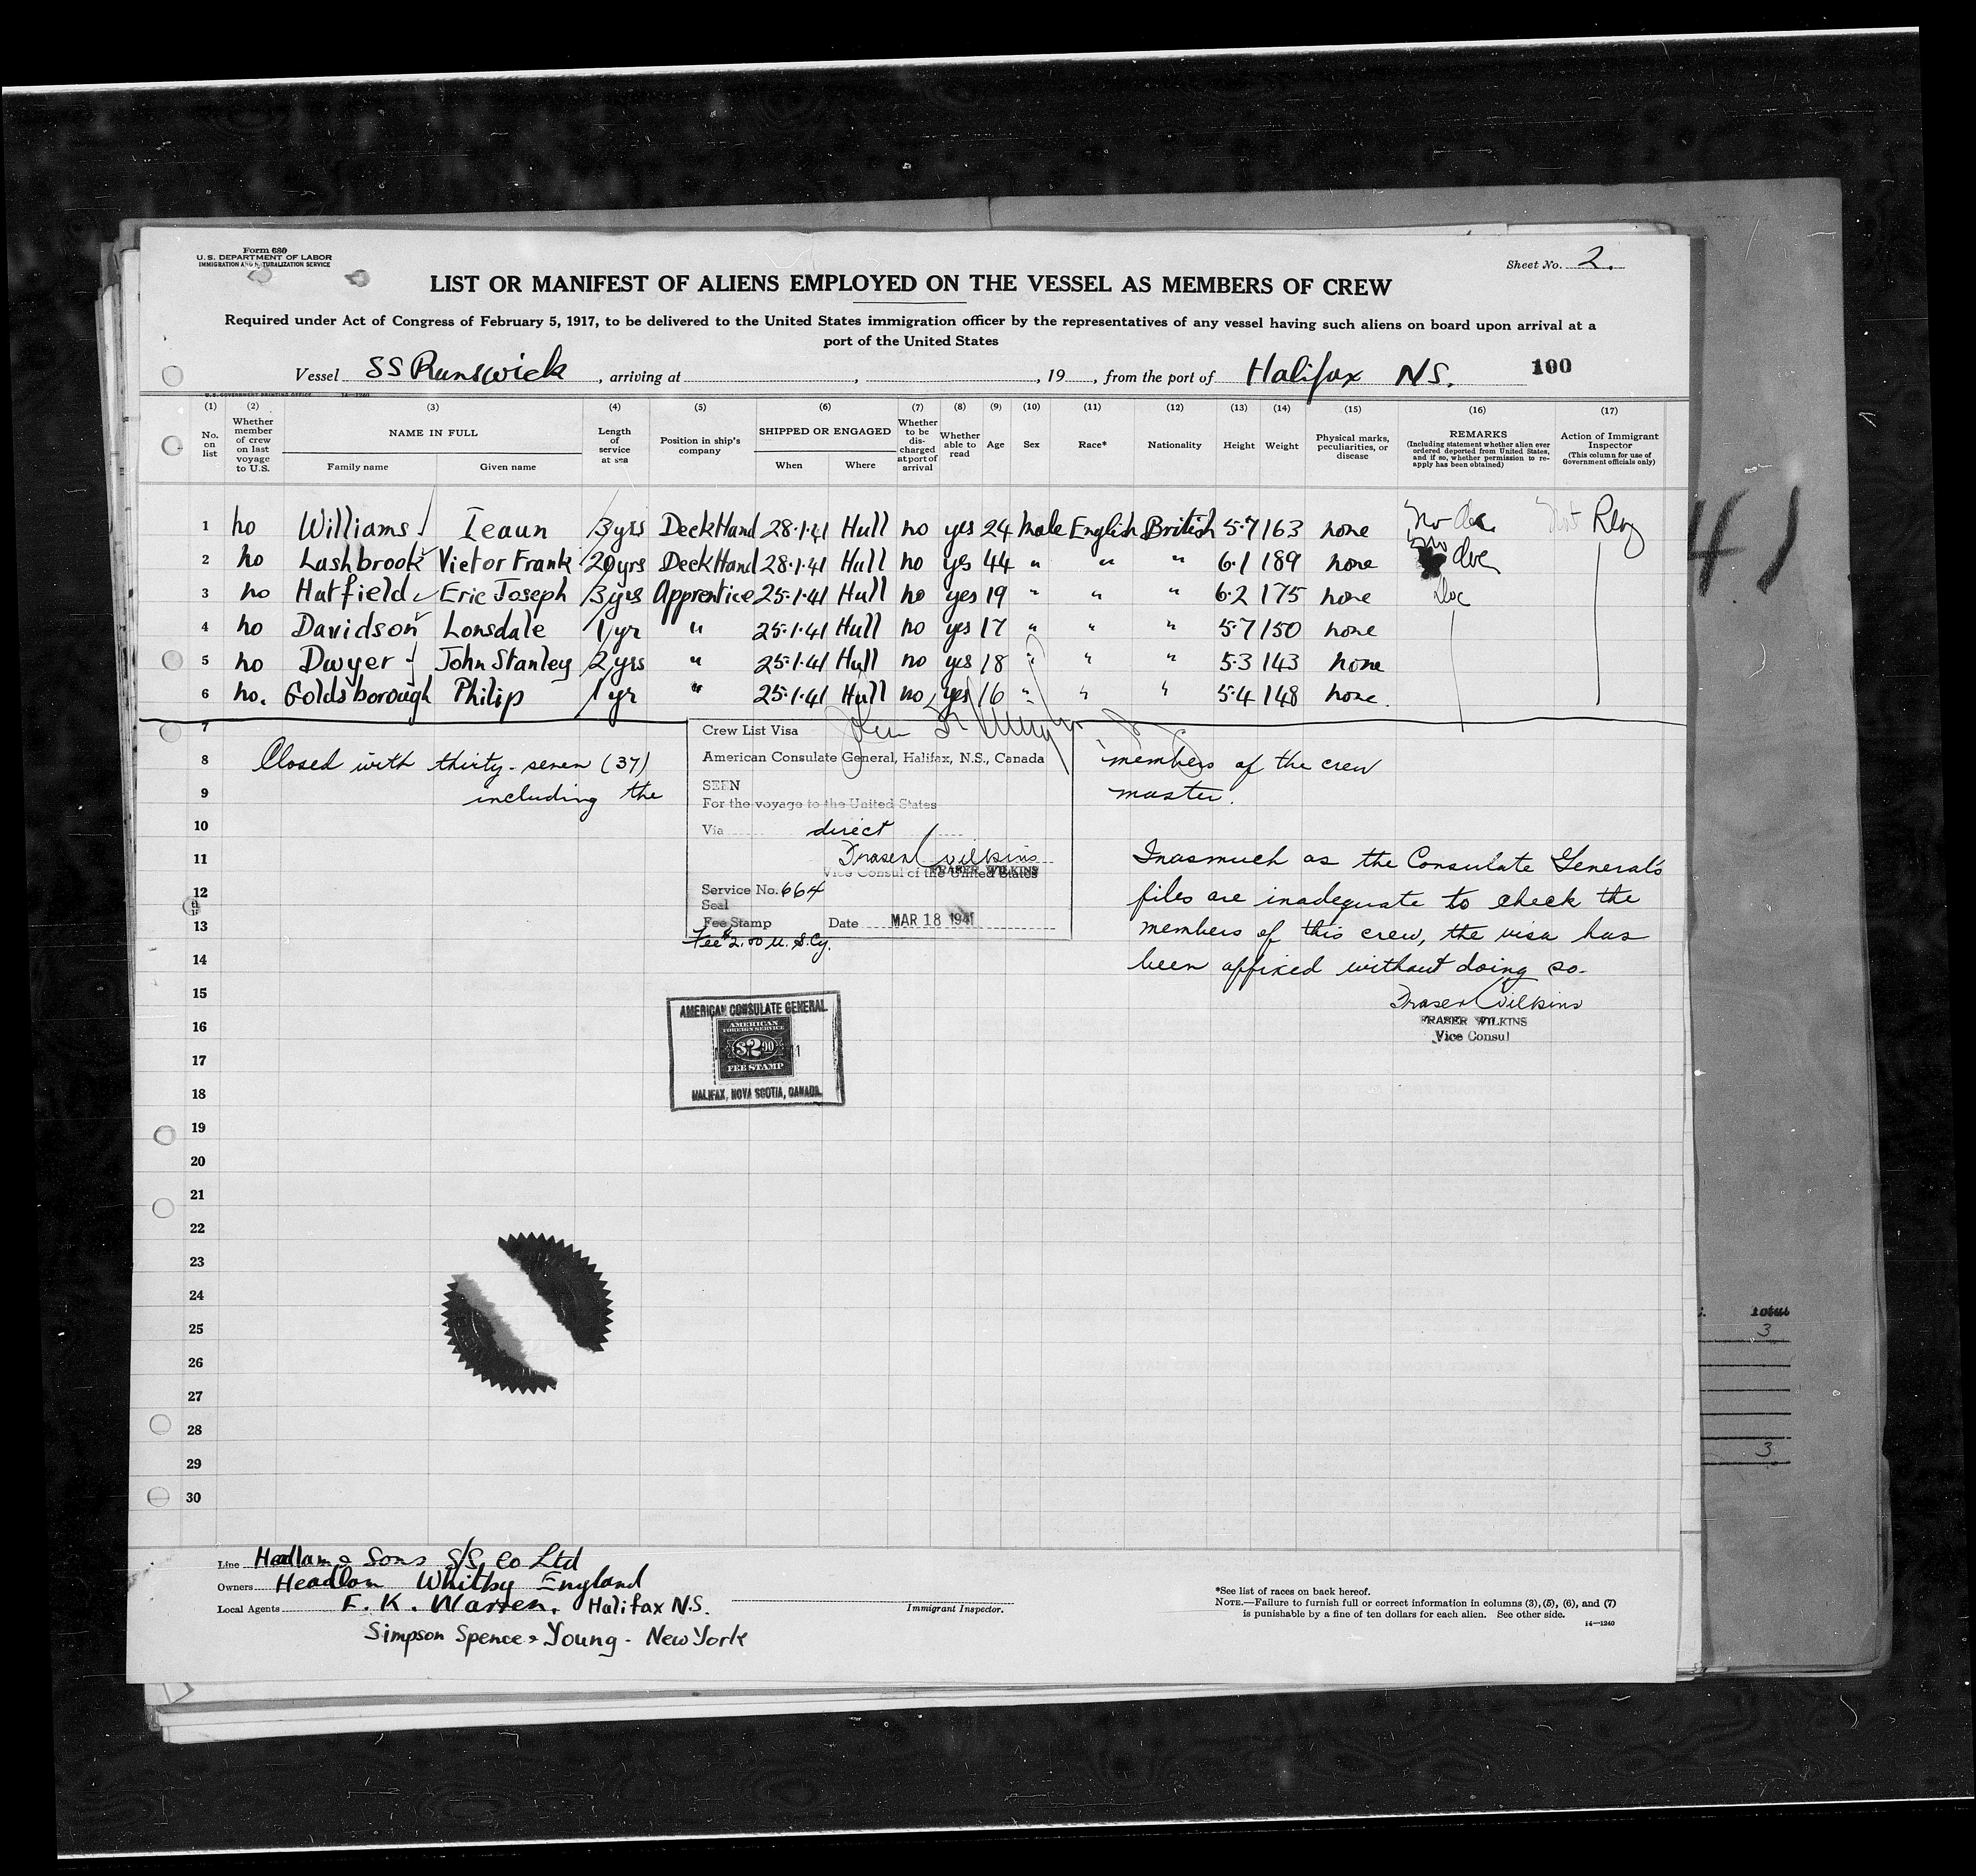 Form 680
U. S. DEPARTMENT OF LABOR
IMMIGRATION AND NATURALIZATION SERVICE
Sheet No. 2.
LIST OR MANIFEST OF ALIENS EMPLOYED ON THE VESSEL AS MEMBERS OF CREW
Required under Act of Congress of February 5, 1917, to be delivered to the United States immigration officer by the representatives of any vessel having such aliens on board upon arrival at a
port of the United States
Vessel SS Runswick, arriving at , , 19 , from the port of Halifax NS. 100
U. S. GOVERNMENT PRINTING OFFICE 14—1240
(1) (2) (3) (4) (5) (6) (7) (8) (9) (10) (11) (12) (13) (14) (15) (16) (17)
No. on list
Whether member of crew on last voyage to U.S.
NAME IN FULL
Family name Given name
Length of service at sea
Position in ship's company
SHIPPED OR ENGAGED
When Where
Whether to be discharged at port of arrival
Whether able to read
Age
Sex
Race*
Nationality
Height
Weight
Physical marks, peculiarities, or disease
REMARKS
(Including statement whether alien ever ordered deported from United States, and if so, whether permission to reapply has been obtained)
Action of Immigrant Inspector
(This column for use of Government officials only)
1 no Williams Ieaun 3 yrs Deck Hand 28.1.41 Hull no yes 24 male English British 5.7 163 none No doc
2 no Lashbrook Victor Frank 20 yrs Deck Hand 28.1.41 Hull no yes 44 " " " 6.1 189 none doc
3 no Hatfield Eric Joseph 3 yrs Apprentice 25.1.41 Hull no yes 19 " " " 6.2 175 none Doc
4 no Davidson Lonsdale 1 yr " 25.1.41 Hull no yes 17 " " " 5.7 150 none
5 no Dwyer John Stanley 2 yrs " 25.1.41 Hull no yes 18 " " " 5.3 143 none
6 no. Goldsborough Philip 1 yr " 25.1.41 Hull no yes 16 " " " 5.4 148 none.
7
8 Closed with thirty-seven (37) members of the crew
9 including the master.
10
11
12
13
14
15
16
17
18
19
20
21
22
23
24
25
26
27
28
29
30
Crew List Visa
American Consulate General, Halifax, N.S., Canada
SEEN
For the voyage to the United States
Via direct
Fraser Wilkins
FRASER WILKINS
Vice Consul of the United States
Service No. 664
Seal
Fee Stamp Date MAR 18 1941
Fee $2.00 U.S.Cy.
Inasmuch as the Consulate General's
files are inadequate to check the
members of this crew, the visa has
been affixed without doing so.
Fraser Wilkins
FRASER WILKINS
Vice Consul
AMERICAN CONSULATE GENERAL
AMERICAN
FOREIGN SERVICE
$2.00
FEE STAMP
HALIFAX, NOVA SCOTIA, CANADA.
Line Headlam & Sons S/S Co Ltd
Owners Headlam Whitby England
Local Agents F. K. Warren. Halifax N.S.
Simpson Spence & Young - New York
Immigrant Inspector.
*See list of races on back hereof.
NOTE.—Failure to furnish full or correct information in columns (3), (5), (6), and (7)
is punishable by a fine of ten dollars for each alien. See other side.
14—1240
41
Total
3
3